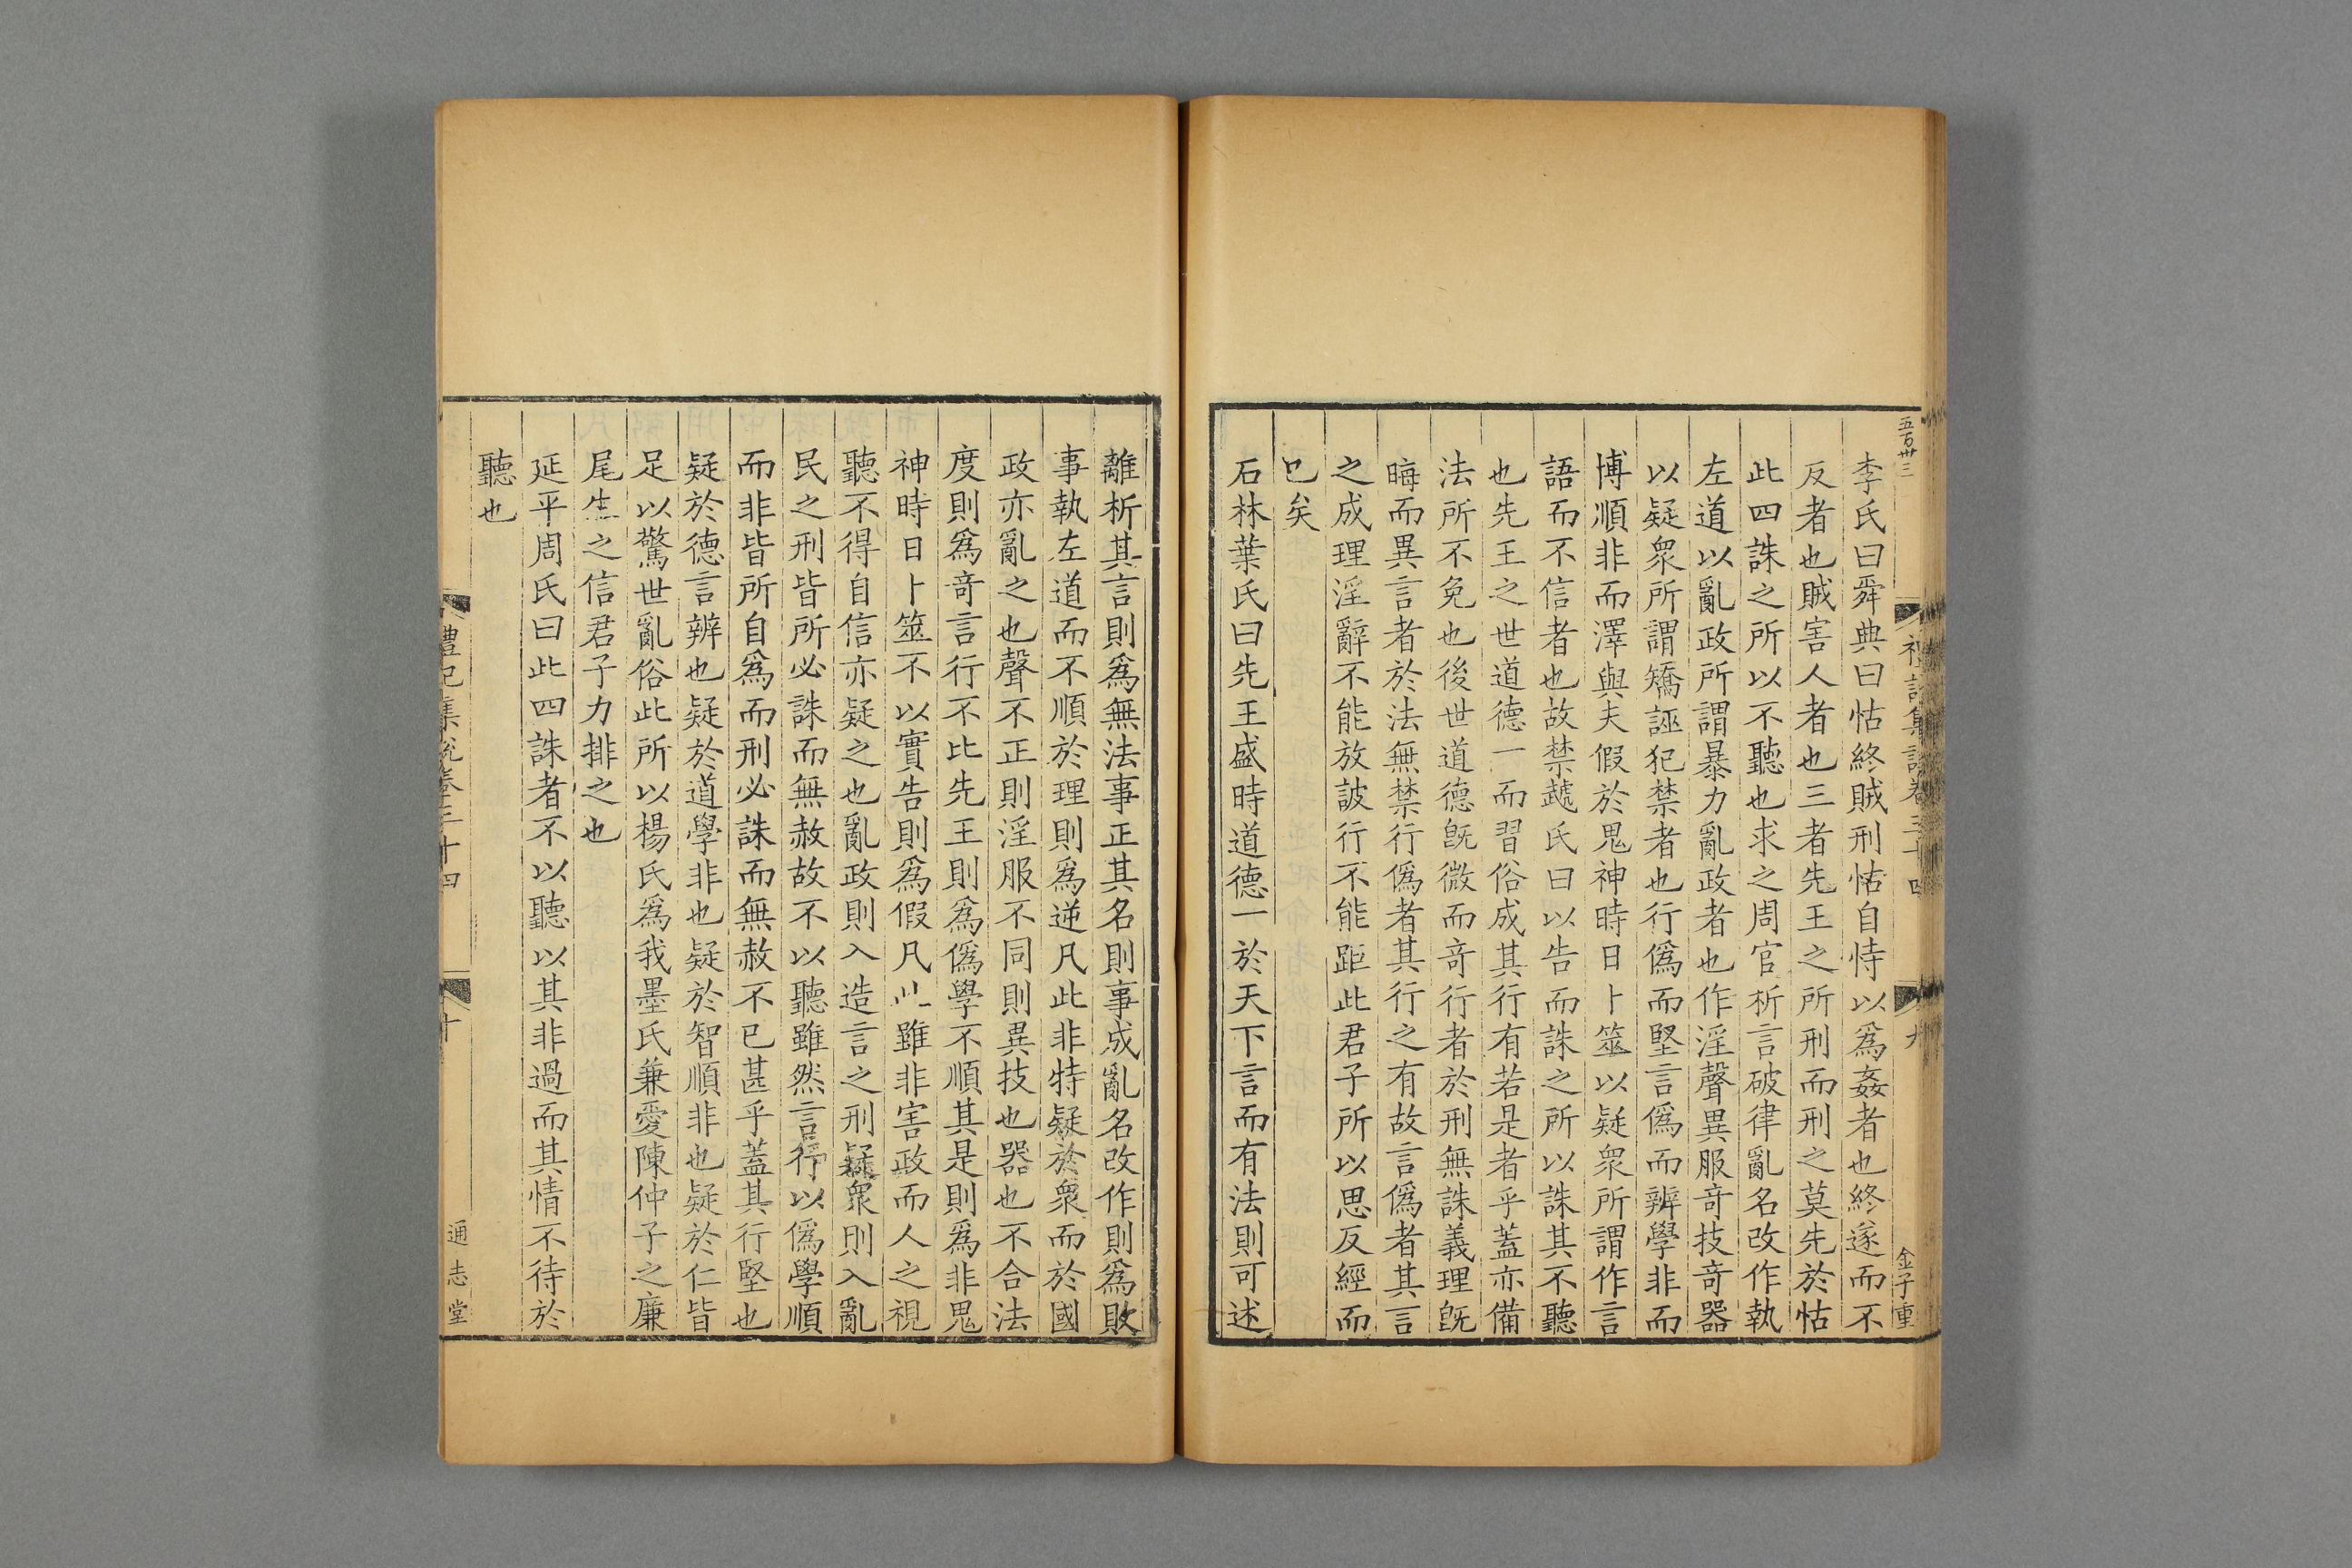 五百卅三
禮記集說卷三十四
九
金子重
李氏曰舜典曰怙終賊刑怙自恃以爲姦者也終遂而不
反者也賊害人者也三者先王之所刑而刑之莫先於怙
此四誅之所以不聽也求之周官析言破律亂名改作執
左道以亂政所謂暴力亂政者也作淫聲異服竒技竒器
以疑衆所謂矯誣犯禁者也行僞而堅言僞而辨學非而
博順非而澤與夫假於鬼神時日卜筮以疑衆所謂作言
語而不信者也故禁虣氏曰以告而誅之所以誅其不聽
也先王之世道德一而習俗成其行有若是者乎蓋亦備
法所不免也後世道德旣微而竒行者於刑無誅義理旣
晦而異言者於法無禁行僞者其行之有故言僞者其言
之成理淫辭不能放詖行不能距此君子所以思反經而
已矣
石林葉氏曰先王盛時道德一於天下言而有法則可述
離析其言則爲無法事正其名則事成亂名改作則爲敗
事執左道而不順於理則爲逆凡此非特疑於衆而於國
政亦亂之也聲不正則淫服不同則異技也器也不合法
度則爲竒言行不比先王則爲僞學不順其是則爲非鬼
神時日卜筮不以實告則爲假凡此雖非害政而人之視
聽不得自信亦疑之也亂政則入造言之刑疑衆則入亂
民之刑皆所必誅而無赦故不以聽雖然言行以僞學順
而非皆所自爲而刑必誅而無赦不已甚乎蓋其行堅也
疑於德言辨也疑於道學非也疑於智順非也疑於仁皆
足以驚世亂俗此所以楊氏爲我墨氏兼愛陳仲子之廉
尾生之信君子力排之也
延平周氏曰此四誅者不以聽以其非過而其情不待於
聽也
禮記集說卷三十四
十
通志堂